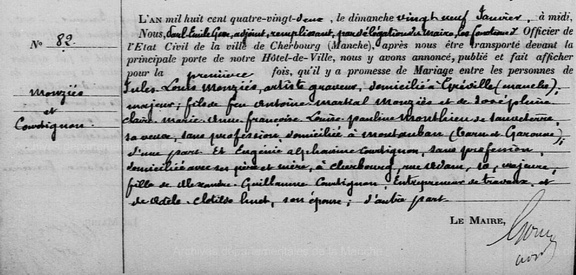 L'AN mil huit cent quatre-vingt-deux, le dimanche vingt neuf Janvier, à midi,
Nous, Emile adjoint, remplissant, par délégation du Maire, les fonctions d' Officier de
N° 82. l'Etat Civil de la ville de Cherbourg (Manche), après nous être transporté devant la
principale porte de notre Hôtel-de-Ville, nous y avons annoncé, publié et fait afficher
pour la première fois, qu'il y a promesse de Mariage entre les personnes de
Monziès
et
Courtignon.
Jules Louis Monziès, artiste graveur, domicilié à Gréville (manche),
majeur; fils de feu Antoine Martial Monziès et de Joséphine
Claire Marie Anne Françoise Louise Pauline de
sa veuve, sans profession, domiciliée à Montauban (Tarn et Garonne),
d'une part. Et Eugénie Alphonsine Courtignon, sans profession,
domiciliée avec ses père et mère, à Cherbourg, rue majeure,
fille de Alexandre Guillaume Courtignon, Entrepreneur de travaux, et
de Adèle Clotilde son épouse; d'autre part.
LE MAIRE,